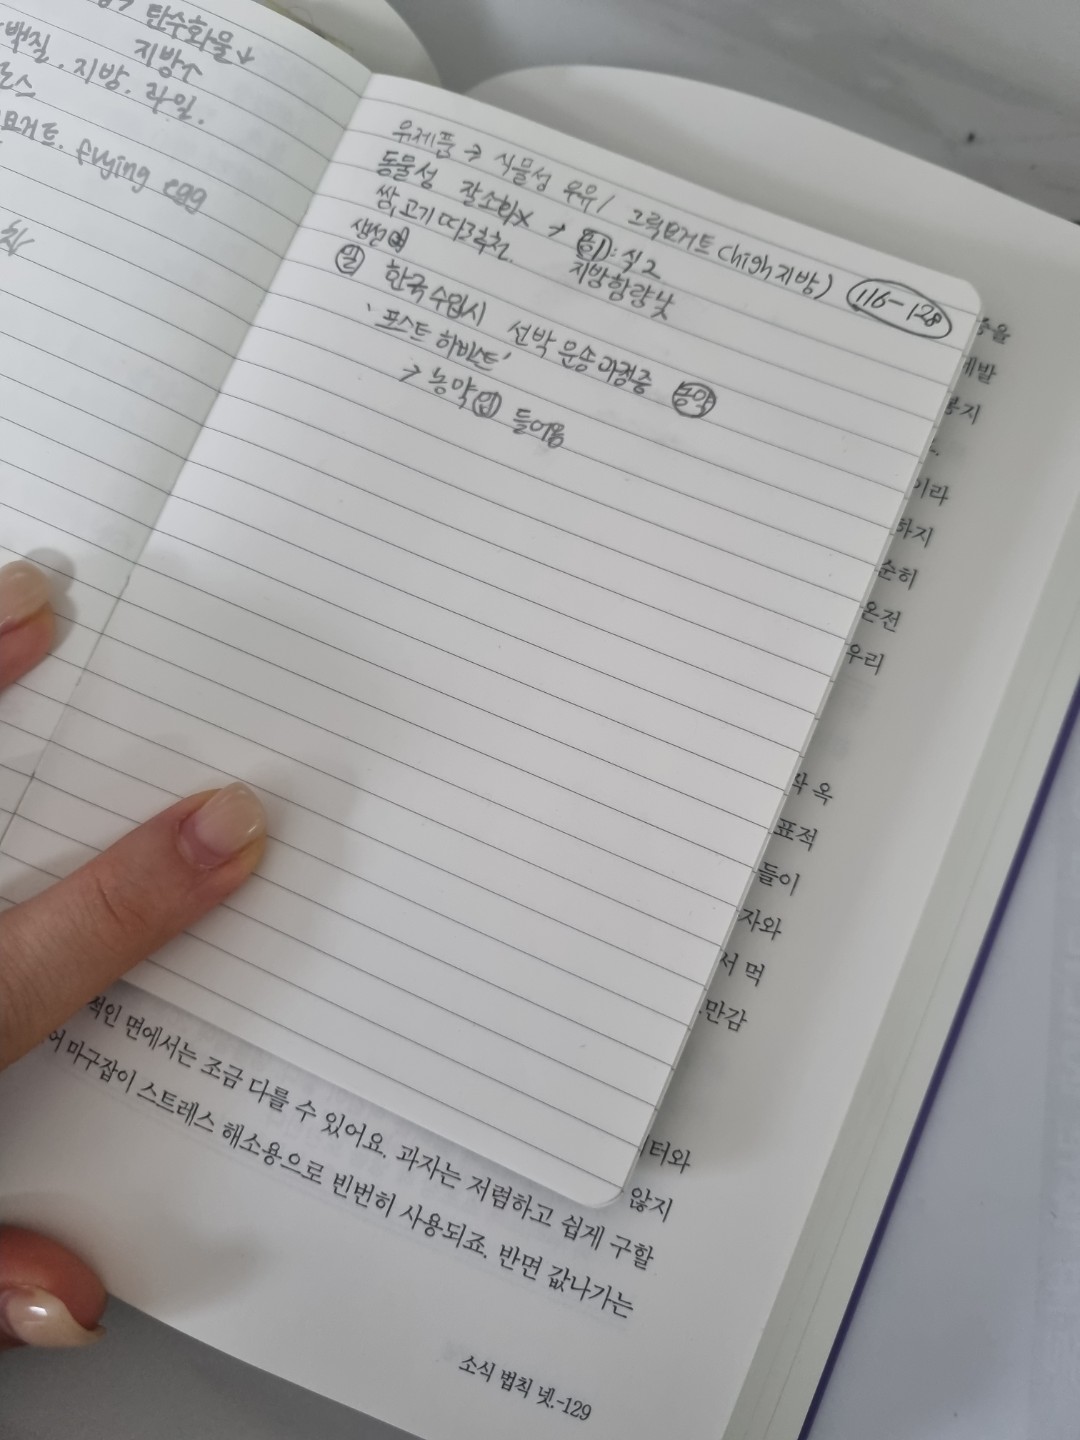 탄수화물↓
지방↑
백질, 지방, 과일,
요거트, frying egg
유제품 → 식물성 우유 / 그릭요거트 (high 지방) 116-128
동물성 잘소화x →
쌀, 고기 따로추천. 지방함량낮
생선
밀 한국 수입시 선박 운송과정중 농약
'포스트 하비스트'
→ 농약 들어옴
중을
제발
이라
하지
순히
온전
우리
작 옥
표적
들이
자와
서 먹
만감
터와
않지
적인 면에서는 조금 다를 수 있어요. 과자는 저렴하고 쉽게 구할
어 마구잡이 스트레스 해소용으로 빈번히 사용되죠. 반면 값나가는
소식 법칙 넷.-129